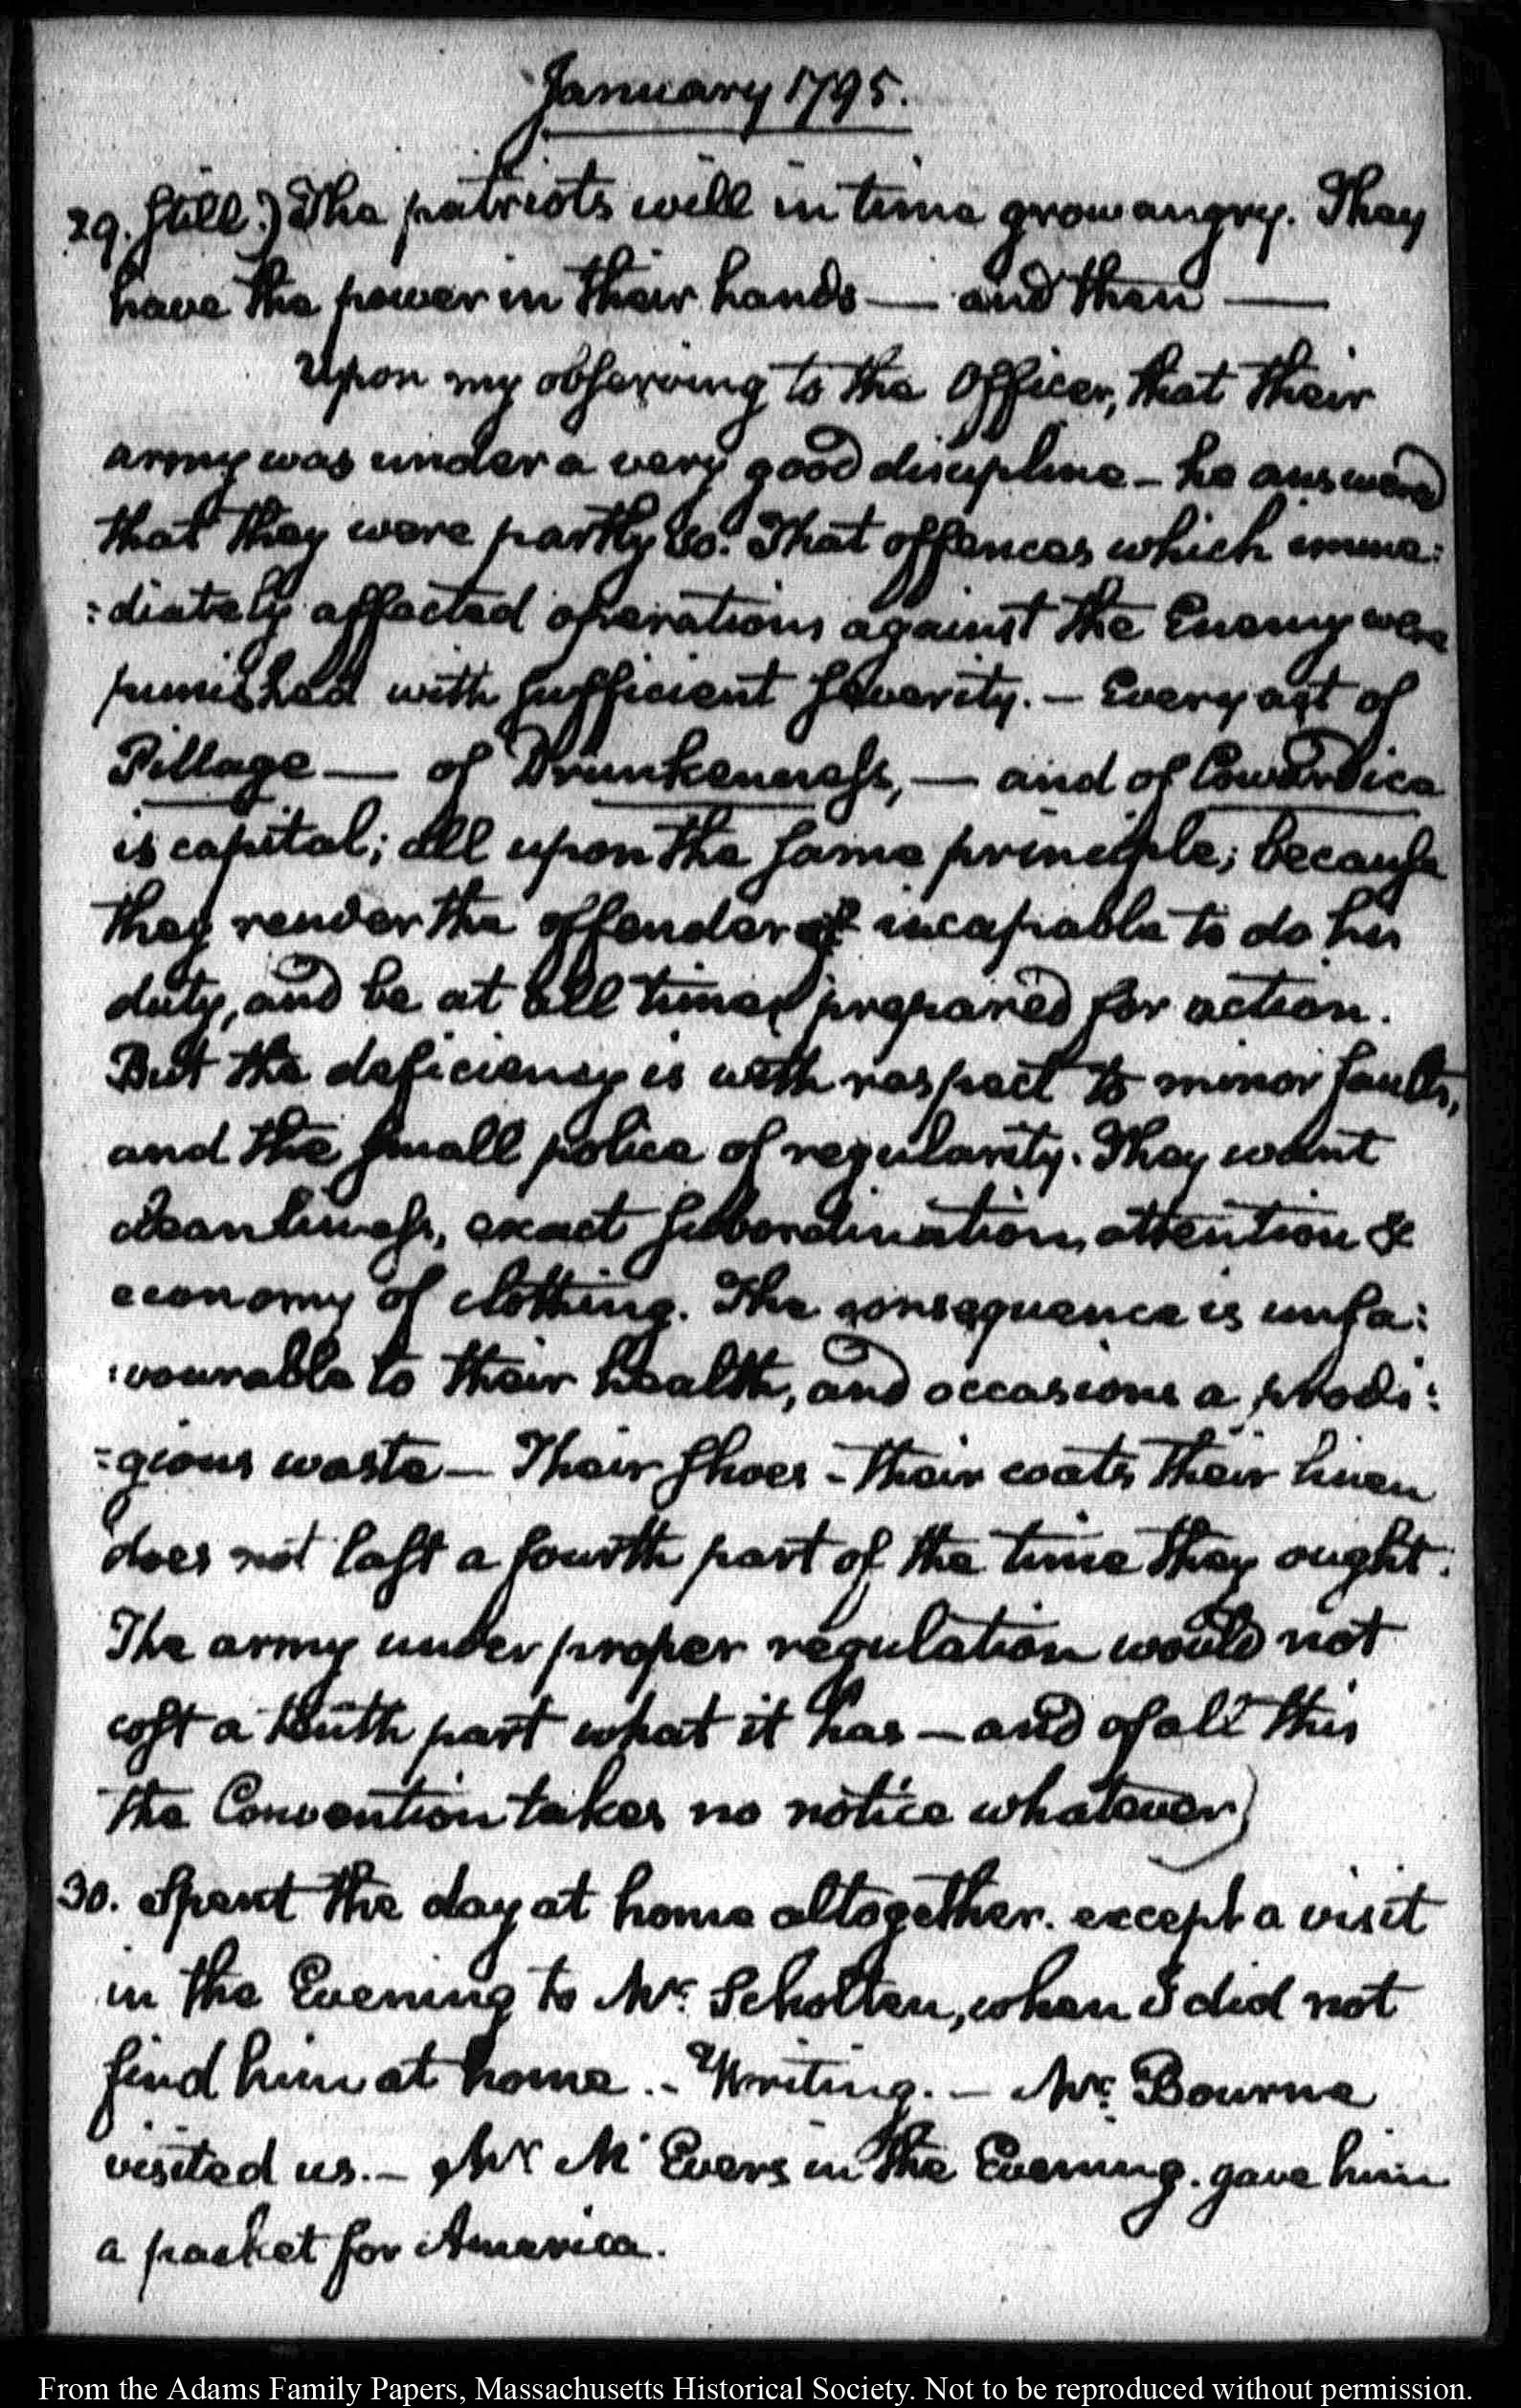 January 1795.
29. Still.) The patriots will in time grow angry. They
have the power in their hands — and then —
Upon my observing to the Officer, that their
army was under a very good discipline — he answered
that they were partly so. That offences which imme:
:diately affected operations against the Enemy were
punished with sufficient severity. — Every act of
Pillage — of Drunkenness, — and of Cowardice
is capital; all upon the same principle; because
they render the offender incapable to do his
duty, and be at all times prepared for action.
But the deficiency is with respect to minor faults,
and the small police of regularity. They want
cleanliness, exact subordination, attention &
economy of clothing. The consequence is unfa:
:vourable to their health, and occasions a prodi:
:gious waste — Their shoes - their coats their linen
does not last a fourth part of the time they ought.
The army under proper regulation would not
cost a tenth part what it has — and of all this
the Convention takes no notice whatever)
30. Spent the day at home altogether. except a visit
in the Evening to Mr. Scholten, when I did not
find him at home. - Writing. — Mr. Bourne
visited us. — Mr Mc Evers in the Evening. gave him
a packet for America.
From the Adams Family Papers, Massachusetts Historical Society. Not to be reproduced without permission.